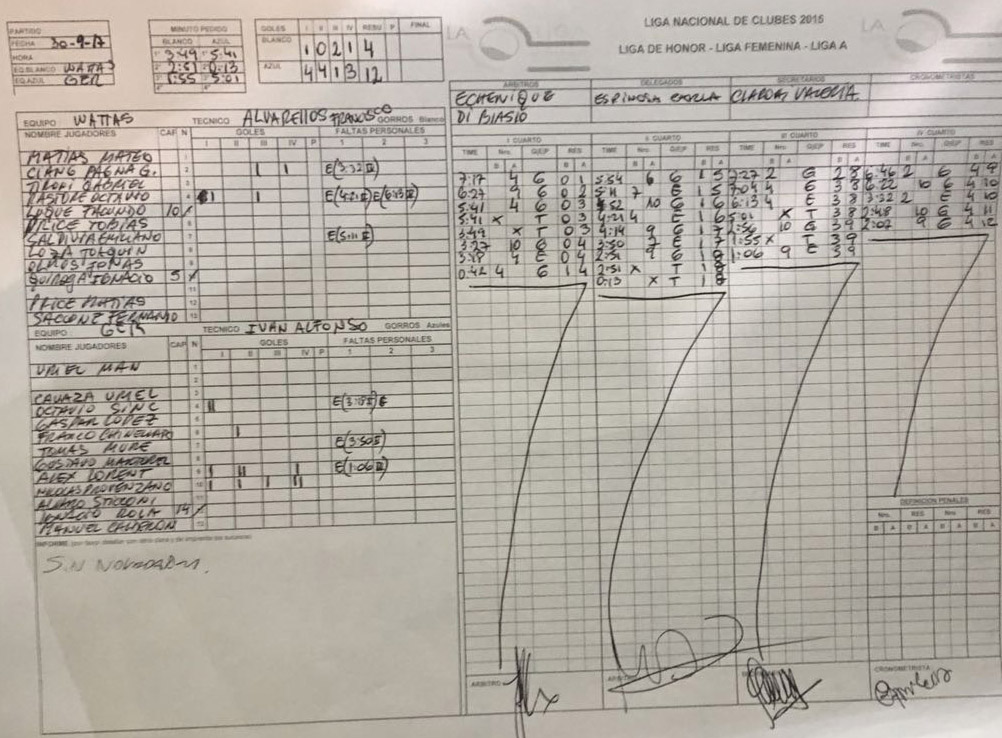 LIGA NACIONAL DE CLUBES 2015
LIGA DE HONOR - LIGA FEMENINA - LIGA A
PARTIDO
FECHA 30-9-17
HORA
EQ.BLANCO WATTAS
EQ.AZUL GER
MINUTO PEDIDO
BLANCO AZUL
1° 3:49 1° 5:41
2° 2:51 2° 0:13
3° 1:55 3° 5:01
4° 4°
GOLES I II III IV RESU P FINAL
BLANCO 1 0 2 1 4
AZUL 4 4 1 3 12
ARBITROS DELEGADOS SECRETARIOS CRONOMETRISTAS
ECHENIQUE ESPINOSA CARLA CLAROS VALERIA
DI BIASIO
EQUIPO WATTAS TECNICO ALVARELLOS FRANCISCO GORROS Blanco
NOMBRE JUGADORES CAP N GOLES FALTAS PERSONALES
I II III IV P 1 2 3
MATIAS MATEO 1
CIANG PAGNA G. 2 I I E(3:32 IV)
GABRIEL 3
PASTORE OCTAVIO 4 I I E(4:21 II) E(6:13 III)
LUQUE FACUNDO 10
FELICE TOBIAS
SALDIVIA EMILIANO 7 E(5:11 II)
LOZA JOAQUIN
OLMOS JONAS
QUIROGA IGNACIO 5
11
FELICE MATIAS 12
SACCONE FERNANDO 13
EQUIPO: GER TECNICO IVAN ALFONSO GORROS Azules
NOMBRE JUGADORES CAP N GOLES FALTAS PERSONALES
I II III IV P 1 2 3
URIEL MAN 1
2
CAVAZA URIEL 3
OCTAVIO SINC 4 II E(3:18 I) E
GASPAR LOPEZ 5
FRANCO 6 I
TOMAS MURE 7 E(3:50 II)
GUSTAVO 8
ALEX LORENT 9 I II II E(1:06 III)
NICOLAS PROVENZANO 10 I I I II
ALVARO 11
IGNACIO ROLA 14
MANUEL CALDERON 13
SIN NOVEDAD
I CUARTO
TIME Nro. G/E/P RES
B A B A
7:17 4 G 0 1
6:27 9 G 0 2
5:41 4 G 0 3
5:41 X T 0 3
3:49 X T 0 3
3:27 10 G 0 4
3:18 4 E 0 4
0:42 4 G 1 4
II CUARTO
TIME Nro. G/E/P RES
B A B A
5:54 6 G 1 5
5:11 7 E 1 5
4:52 10 G 1 6
4:21 4 E 1 6
4:14 9 G 1 7
3:50 7 E 1 7
2:51 9 G 1 8
2:51 X T 1 8
0:13 X T 1 8
III CUARTO
TIME Nro. G/E/P RES
B A B A
7:27 2 G 2 8
7:04 4 G 3 8
6:13 4 E 3 8
5:01 X T 3 8
2:56 10 G 3 9
1:55 X T 3 9
1:06 9 E 3 9
IV CUARTO
TIME Nro. G/E/P RES
B A B A
6:46 2 G 4 9
6:22 10 G 4 10
3:32 2 E 4 10
2:48 10 G 4 11
2:02 9 G 4 12
DEFINICION PENALES
Nro. RES Nro. RES
B A B A B A B A
ARBITRO
CRONOMETRISTA